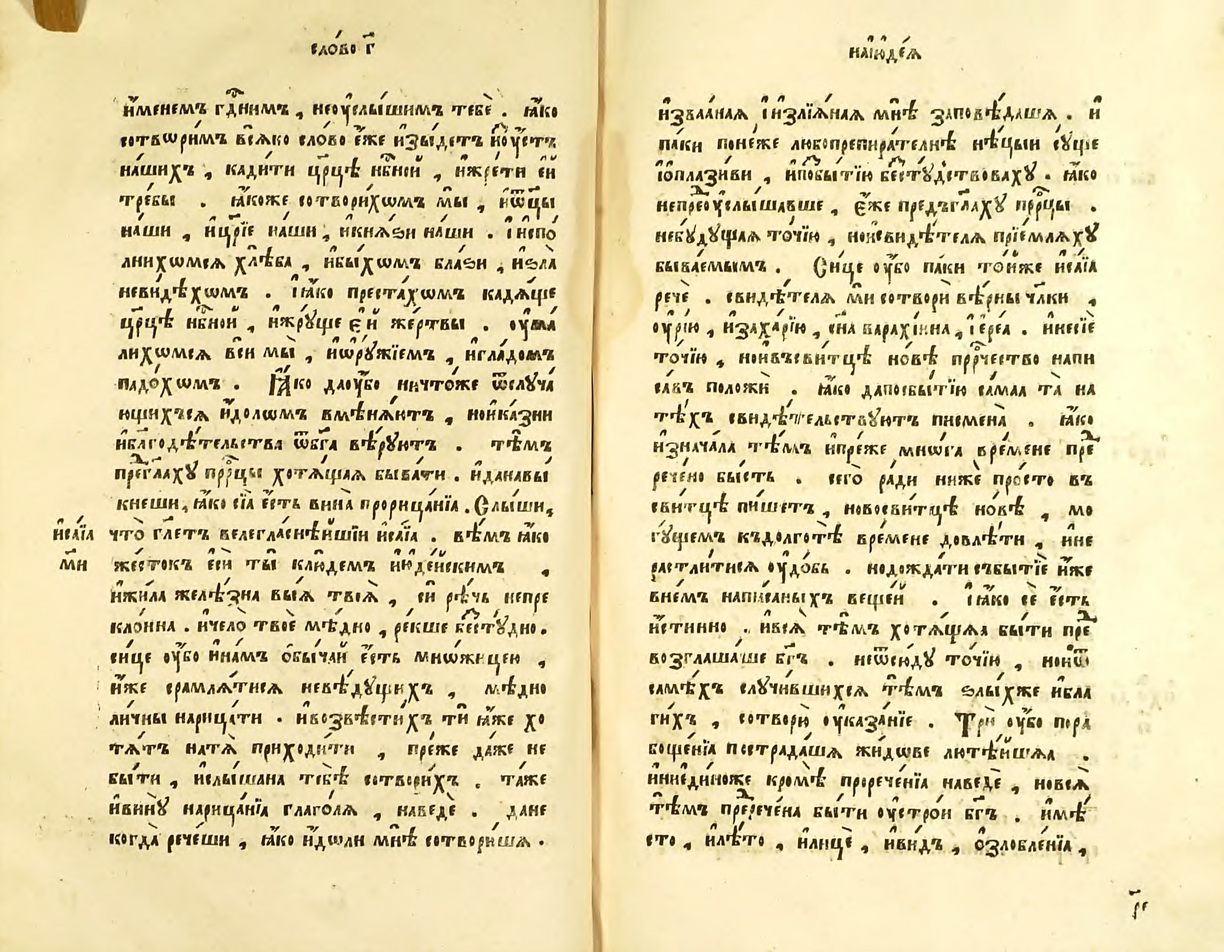 сло́во г҃
и҆́менемъ гдⷭ҇нимъ , неоуслы́шимъ тебѐ . ꙗ҆́ко
сотвори́мъ всѧ́ко сло́во є҆́же и҆зы́детъ и҆зоу́стъ
на́шихъ , кади́ти цр҃цѣ нбⷭ҇нѣй , и҆жре́ти є҆́й
тре́бы . ꙗ҆́коже сотвори́хѡмъ мы̀ , и҆ѻ҆тцы̀
на́ши , и҆цр҃іе на́ши , и҆кнѧ́ѕи на́ши . і҆испо
лнихѡмсѧ хлѣ́ба , и҆бы́хѡмъ бла́ѕи , и҆ѕла̀
неви́дѣхѡмъ . і҆ꙗ҆́ко преста́хѡмъ кадѧ́ще
цр҃цѣ нбⷭ҇ной , и҆жру́ще є҆́й же́ртвы . оу҆ма́
лихѡмсѧ всѝ мы̀ , и҆ѻ҆ру́жїемъ , и҆гла́домъ
падо́хѡмъ . Ꙗ҆́ко даоу҆́бо ничто́же ѿслуча́
ющихъсѧ и҆́долѡмъ вмѣнѧ́ютъ , нои҆ка́зни
и҆благодѣ́тельства ѿбг҃а вѣ́руютъ . тѣ́мъ
предглⷶ҇аху прⷪ҇рцы хотѧ́щаѧ быва́ти . и҆данавы́
кнеши, ꙗ҆́ко сїѧ̀ є҆́сть вина̀ прорица́нїѧ . Слы́ши,
и҆са́їа что̀ гл҃етъ велегла́снѣйшїи и҆са́їа . вѣ́мъ ꙗ҆́ко
м҃и же́стокъ є҆сѝ ты̀ клю́демъ и҆юде́йскимъ ,
и҆жи́ла желѣ́зна вы́ѧ твоѧ̀ , си́ рѣчь непре
кло́нна . и҆чело̀ твоѐ мѣ́дно , ре́кше бесту́дно .
си́це оу҆́бо и҆на́мъ ѻ҆бы́чай є҆́сть мно́жицею ,
и҆́же срамлѧ́тисѧ невѣ́дущихъ , мѣ́дно
ли́чны нарица́ти . и҆возвѣсти́хъ тѝ ꙗ҆́же хо
тѧ́тъ натѧ̀ приходи́ти , пре́же да́же не
бы́ти , и҆слы́шана тебѣ̀ сотвори́хъ . та́же
и҆вину̀ нарица́нїѧ глаго́лѧ , наведѐ . дане
когда̀ рече́ши , ꙗ҆́ко и҆́доли мнѣ̀ сотвори́шѧ .
наі҆юде́ѧ
и҆зва́анаѧ і҆излїѧ́наѧ мнѣ̀ заповѣ́дашѧ . и҆
па́ки поне́же любопрепира́телнѣ нѣ́цыи су́ще
і҆ѻплази́ви , и҆побы́тїю бесту́дствоваху . ꙗ҆́ко
непреоу҆слы́шавше , є҆́же предъглⷶ҇аху прⷪ҇рцы .
небу́дущаѧ то́чїю , нои҆свидѣ́телѧ прїе́млѧху
быва́емымъ . Си́це оу҆́бо па́ки то́йже и҆са́їа
речѐ . свидѣ́телѧ мѝ сотворѝ вѣ́рны чл҃ки ,
оу҆рі́ю , и҆заха́рїю , сн҃а варахі́нна , і҆ере́а . и҆несїѐ
то́чїю , нои҆въсви́тцѣ но́вѣ прⷪ҇рчество напи
са́въ положѝ . ꙗ҆́ко дапосбы́тїю сама́а та̀ на
тѣ́хъ свидѣ́тельствуютъ писмена̀ . ꙗ҆́ко
и҆знача́ла тѣ́мъ и҆пре́же мно́га вре́мене пре
рече́но бы́сть . сего̀ ра́ди нижѐ про́сто въ
сви́тцѣ пи́шетъ , новосви́тцѣ но́вѣ , мо
гу́щемъ къдолготѣ̀ вре́мене довлѣ́ти , и҆не
растли́тисѧ оу҆до́бь . нодожда́ти събы́тїе и҆́же
вне́мъ напи́саныхъ веще́й . і҆ꙗ҆́ко сѐ є҆́сть
и҆́стинно . и҆всѧ̀ тѣ́мъ хотѧ́щаѧ бы́ти пре
возглаша́ше бг҃ъ . неѿсю́ду то́чїю , нои҆ѿ
самѣ́хъ случи́вшихсѧ тѣ́мъ ѕлы́хже и҆бла
ги́хъ , сотворю̀ оу҆каза́нїе . Трѝ оу҆́бо пора
боще́нїа пострада́шѧ жи́дове лютѣ́йшаѧ .
и҆ниеди́ноже кромѣ̀ прорече́нїа наведѐ , новсѧ̀
тѣ́мъ предрече́на бы́ти оу҆стро́и бг҃ъ . и҆мѣ́
сто , и҆лѣ́то , и҆лицѐ , и҆ви́дъ , ѻ҆ѕлобле́нїа ,
р҃е